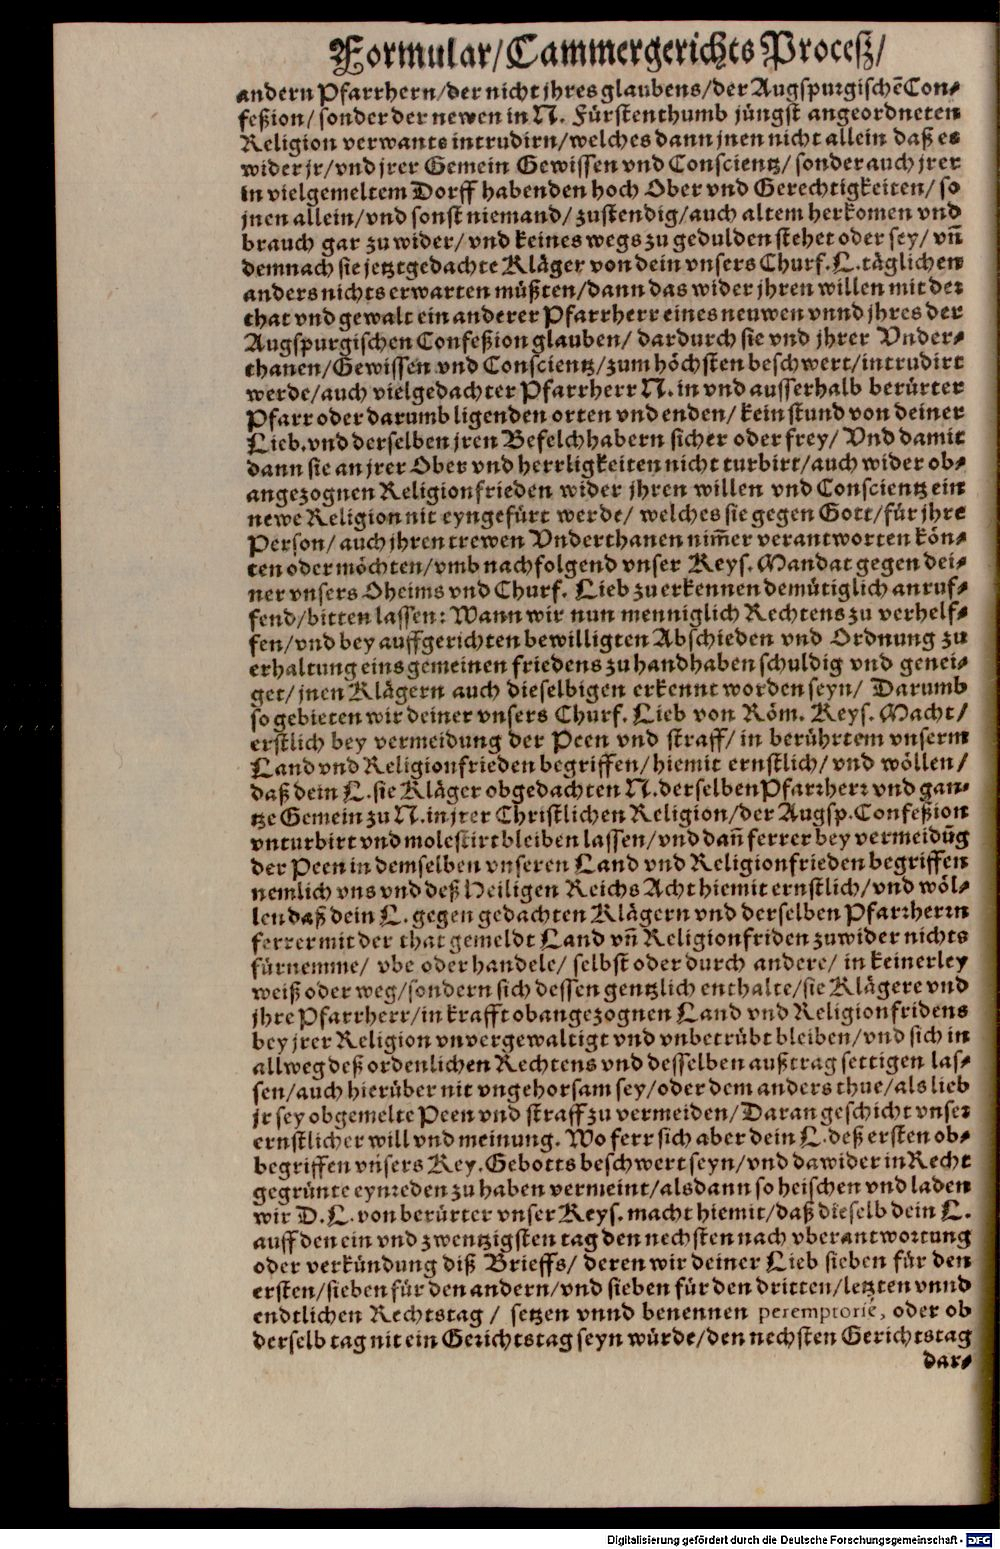 Formular/Cammergerichts Proceß/
andern Pfarrhern/der nicht jhres glaubens/der Augspurgischē Con-
feßion/sonder der newen in N. Fürstenthumb jüngst angeordneten
Religion verwants intrudirn/welches dann jnen nicht allein daß es
wider jr/vnd jrer Gemein Gewissen vnd Conscientz/sonder auch jrer
in vielgemeltem Dorff habenden hoch Ober vnd Gerechtigkeiten/so
jnen allein/vnd sonst niemand/zustendig/auch altem herkomen vnd
brauch gar zu wider/vnd keines wegs zu gedulden stehet oder sey/vñ
demnach sie jetztgedachte Kläger von dein vnsers Churf. L. täglichen
anders nichts erwarten müßten/dann das wider jhren willen mit der
that vnd gewalt ein anderer Pfarrherr eines neuwen vnnd jhres der
Augspurgischen Confeßion glauben/dardurch sie vnd jhrer Vnder-
thanen/Gewissen vnd Conscientz/zum höchsten beschwert/intrudirt
werde/auch vielgedachter Pfarrherr N. in vnd ausserhalb berürter
Pfarr oder darumb ligenden orten vnd enden/kein stund von deiner
Lieb. vnd derselben jren Befelchhabern sicher oder frey/Vnd damit
dann sie an jrer Ober vnd herrligkeiten nicht turbirt/auch wider ob-
angezognen Religionfrieden wider jhren willen vnd Conscientz ein
newe Religion nit eyngefürt werde/welches sie gegen Gott/für jhre
Person/auch jhren trewen Vnderthanen nim̄er verantworten kön-
ten oder möchten/vmb nachfolgend vnser Keys. Mandat gegen dei-
ner vnsers Oheims vnd Churf. Lieb zu erkennen demütiglich anruf-
fend/bitten lassen: Wann wir nun menniglich Rechtens zu verhelf-
fen/vnd bey auffgerichten bewilligten Abschieden vnd Ordnung zu
erhaltung eins gemeinen friedens zu handhaben schuldig vnd genei-
get/jnen Klägern auch dieselbigen erkennt worden seyn/Darumb
so gebieten wir deiner vnsers Churf. Lieb von Röm. Keys. Macht/
erstlich bey vermeidung der Peen vnd straff/in berührtem vnserm
Land vnd Religionfrieden begriffen/hiemit ernstlich/vnd wöllen/
daß dein L. sie Kläger obgedachten N. derselben Pfarrherr vnd gan-
tze Gemein zu N. in jrer Christlichen Religion/der Augsp. Confeßion
vnturbirt vnd molestirt bleiben lassen/vnd dañ ferrer bey vermeidūg
der Peen in demselben vnseren Land vnd Religionfrieden begriffen
nemlich vns vnd deß Heiligen Reichs Acht hiemit ernstlich/vnd wöl-
len daß dein L. gegen gedachten Klägern vnd derselben Pfarrherrn
ferrer mit der that gemeldt Land vñ Religionfriden zuwider nichts
fürnemme/vbe oder handele/selbst oder durch andere/in keinerley
weiß oder weg/sondern sich dessen gentzlich enthalte/sie Klägere vnd
jhre Pfarrherr/in krafft obangezognen Land vnd Religionfridens
bey jrer Religion vnvergewaltigt vnd vnbetrübt bleiben/vnd sich in
allweg deß ordenlichen Rechtens vnd desselben außtrag settigen las-
sen/auch hierüber nit vngehorsam sey/oder dem anders thue/als lieb
jr sey obgemelte Peen vnd straff zu vermeiden/Daran geschicht vnser
ernstlicher will vnd meinung. Wo ferr sich aber dein L. deß ersten ob-
begriffen vnsers Key. Gebotts beschwert seyn/vnd dawider in Recht
gegrünte eynreden zu haben vermeint/alsdann so heischen vnd laden
wir D. L. von berürter vnser Keys. macht hiemit/daß dieselb dein L.
auff den ein vnd zwentzigsten tag den nechsten nach vberantwortung
oder verkündung diß Brieffs/deren wir deiner Lieb sieben für den
ersten/sieben für den andern/vnd sieben für den dritten/letzten vnnd
endtlichen Rechtstag/setzen vnnd benennen peremptoriè, oder ob
derselb tag nit ein Gerichtstag seyn würde/den nechsten Gerichtstag
dar-
Digitalisierung gefördert durch die Deutsche Forschungsgemeinschaft - DFG